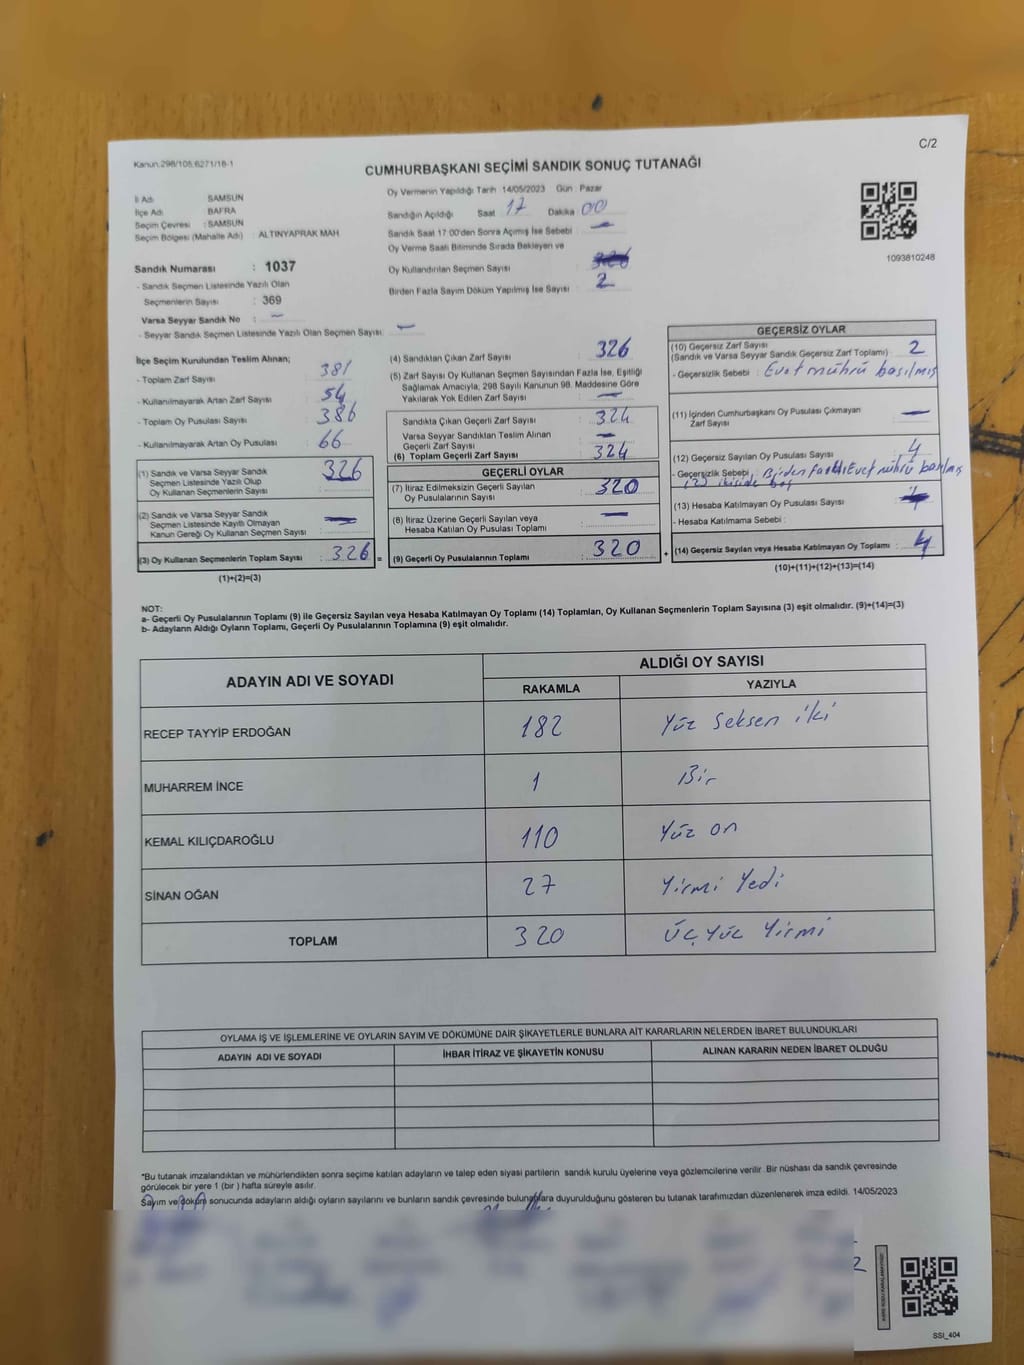 C/2
Kanun.298/105,6271/18-1
CUMHURBAŞKANI SEÇİMİ SANDIK SONUÇ TUTANAĞI
İl Adı SAMSUN
İlçe Adı BAFRA
Seçim Çevresi : SAMSUN
Seçim Bölgesi (Mahalle Adı) : ALTINYAPRAK MAH
Sandık Numarası : 1037
- Sandık Seçmen Listesinde Yazılı Olan
Seçmenlerin Sayısı : 369
Varsa Seyyar Sandık No : -
- Seyyar Sandık Seçmen Listesinde Yazılı Olan Seçmen Sayısı : -
Oy Vermenin Yapıldığı Tarih 14/05/2023 Gün : Pazar
Sandığın Açıldığı Saat 17 Dakika 00
Sandık Saat 17:00'den Sonra Açımış İse Sebebi : -
Oy Verme Saati Bitiminde Sırada Bekleyen ve
Oy Kullandırılan Seçmen Sayısı :
Birden Fazla Sayım Döküm Yapılmış İse Sayısı : 2
1093810248
İlçe Seçim Kurulundan Teslim Alınan;
- Toplam Zarf Sayısı : 381
- Kullanılmayarak Artan Zarf Sayısı : 54
- Toplam Oy Pusulası Sayısı : 386
- Kullanılmayarak Artan Oy Pusulası : 66
(1) Sandık ve Varsa Seyyar Sandık
Seçmen Listesinde Yazılı Olup
Oy Kullanan Seçmenlerin Sayısı : 326
(2) Sandık ve Varsa Seyyar Sandık
Seçmen Listesinde Kayıtlı Olmayan
Kanun Gereği Oy Kullanan Seçmen Sayısı : -
(3) Oy Kullanan Seçmenlerin Toplam Sayısı : 326 =
(1)+(2)=(3)
(4) Sandıktan Çıkan Zarf Sayısı : 326
(5) Zarf Sayısı Oy Kullanan Seçmen Sayısından Fazla İse, Eşitliği
Sağlamak Amacıyla, 298 Sayılı Kanunun 98. Maddesine Göre
Yakılarak Yok Edilen Zarf Sayısı : -
Sandıkta Çıkan Geçerli Zarf Sayısı : 324
Varsa Seyyar Sandıktan Teslim Alınan
Geçerli Zarf Sayısı : -
(6) Toplam Geçerli Zarf Sayısı : 324
GEÇERLİ OYLAR
(7) İtiraz Edilmeksizin Geçerli Sayılan
Oy Pusulalarının Sayısı : 320
(8) İtiraz Üzerine Geçerli Sayılan veya
Hesaba Katılan Oy Pusulası Toplamı : -
(9) Geçerli Oy Pusulalarının Toplamı : 320 +
GEÇERSİZ OYLAR
(10) Geçersiz Zarf Sayısı
(Sandık ve Varsa Seyyar Sandık Geçersiz Zarf Toplamı) : 2
- Geçersizlik Sebebi : Evet mührü basılmış
(11) İçinden Cumhurbaşkanı Oy Pusulası Çıkmayan
Zarf Sayısı : -
(12) Geçersiz Sayılan Oy Pusulası Sayısı : 4
- Geçersizlik Sebebi : Birden Evet mührü basılmış
(13) Hesaba Katılmayan Oy Pusulası Sayısı :
- Hesaba Katılmama Sebebi :
(14) Geçersiz Sayılan veya Hesaba Katılmayan Oy Toplamı : 4
(10)+(11)+(12)+(13)=(14)
NOT:
a- Geçerli Oy Pusulalarının Toplamı (9) ile Geçersiz Sayılan veya Hesaba Katılmayan Oy Toplamı (14) Toplamları, Oy Kullanan Seçmenlerin Toplam Sayısına (3) eşit olmalıdır. (9)+(14)=(3)
b- Adayların Aldığı Oyların Toplamı, Geçerli Oy Pusulalarının Toplamına (9) eşit olmalıdır.
ADAYIN ADI VE SOYADI ALDIĞI OY SAYISI
RAKAMLA YAZIYLA
RECEP TAYYİP ERDOĞAN 182 Yüz Seksen iki
MUHARREM İNCE 1 Bir
KEMAL KILIÇDAROĞLU 110 Yüz on
SİNAN OĞAN 27 Yirmi Yedi
TOPLAM 320 Üç Yüz Yirmi
OYLAMA İŞ VE İŞLEMLERİNE VE OYLARIN SAYIM VE DÖKÜMÜNE DAİR ŞİKAYETLERLE BUNLARA AİT KARARLARIN NELERDEN İBARET BULUNDUKLARI
ADAYIN ADI VE SOYADI İHBAR İTİRAZ VE ŞİKAYETİN KONUSU ALINAN KARARIN NEDEN İBARET OLDUĞU
*Bu tutanak imzalandıktan ve mühürlendikten sonra seçime katılan adayların ve talep eden siyasi partilerin sandık kurulu üyelerine veya gözlemcilerine verilir. Bir nüshası da sandık çevresinde
görülecek bir yere 1 (bir ) hafta süreyle asılır.
Sayım ve döküm sonucunda adayların aldığı oyların sayılarını ve bunların sandık çevresinde bulunanlara duyurulduğunu gösteren bu tutanak tarafımızdan düzenlenerek imza edildi. 14/05/2023
SSİ_404